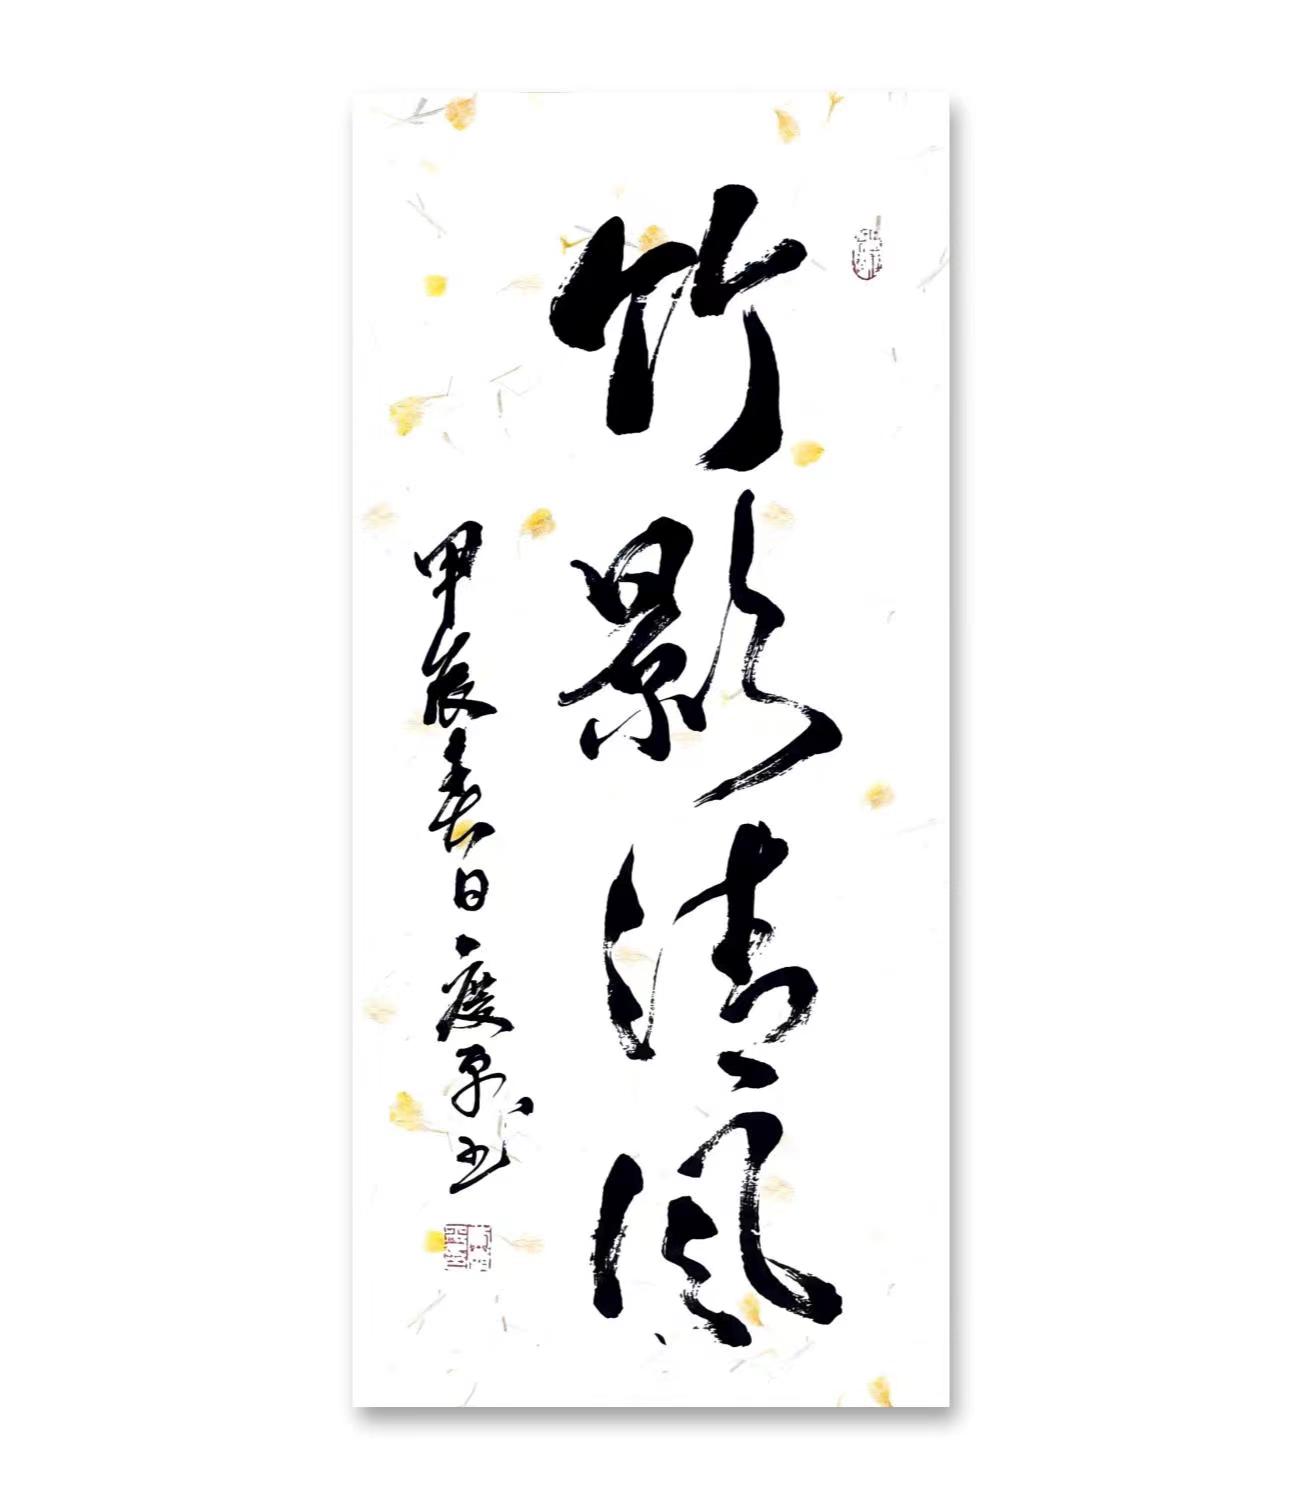 竹影清风
甲辰春日度平书